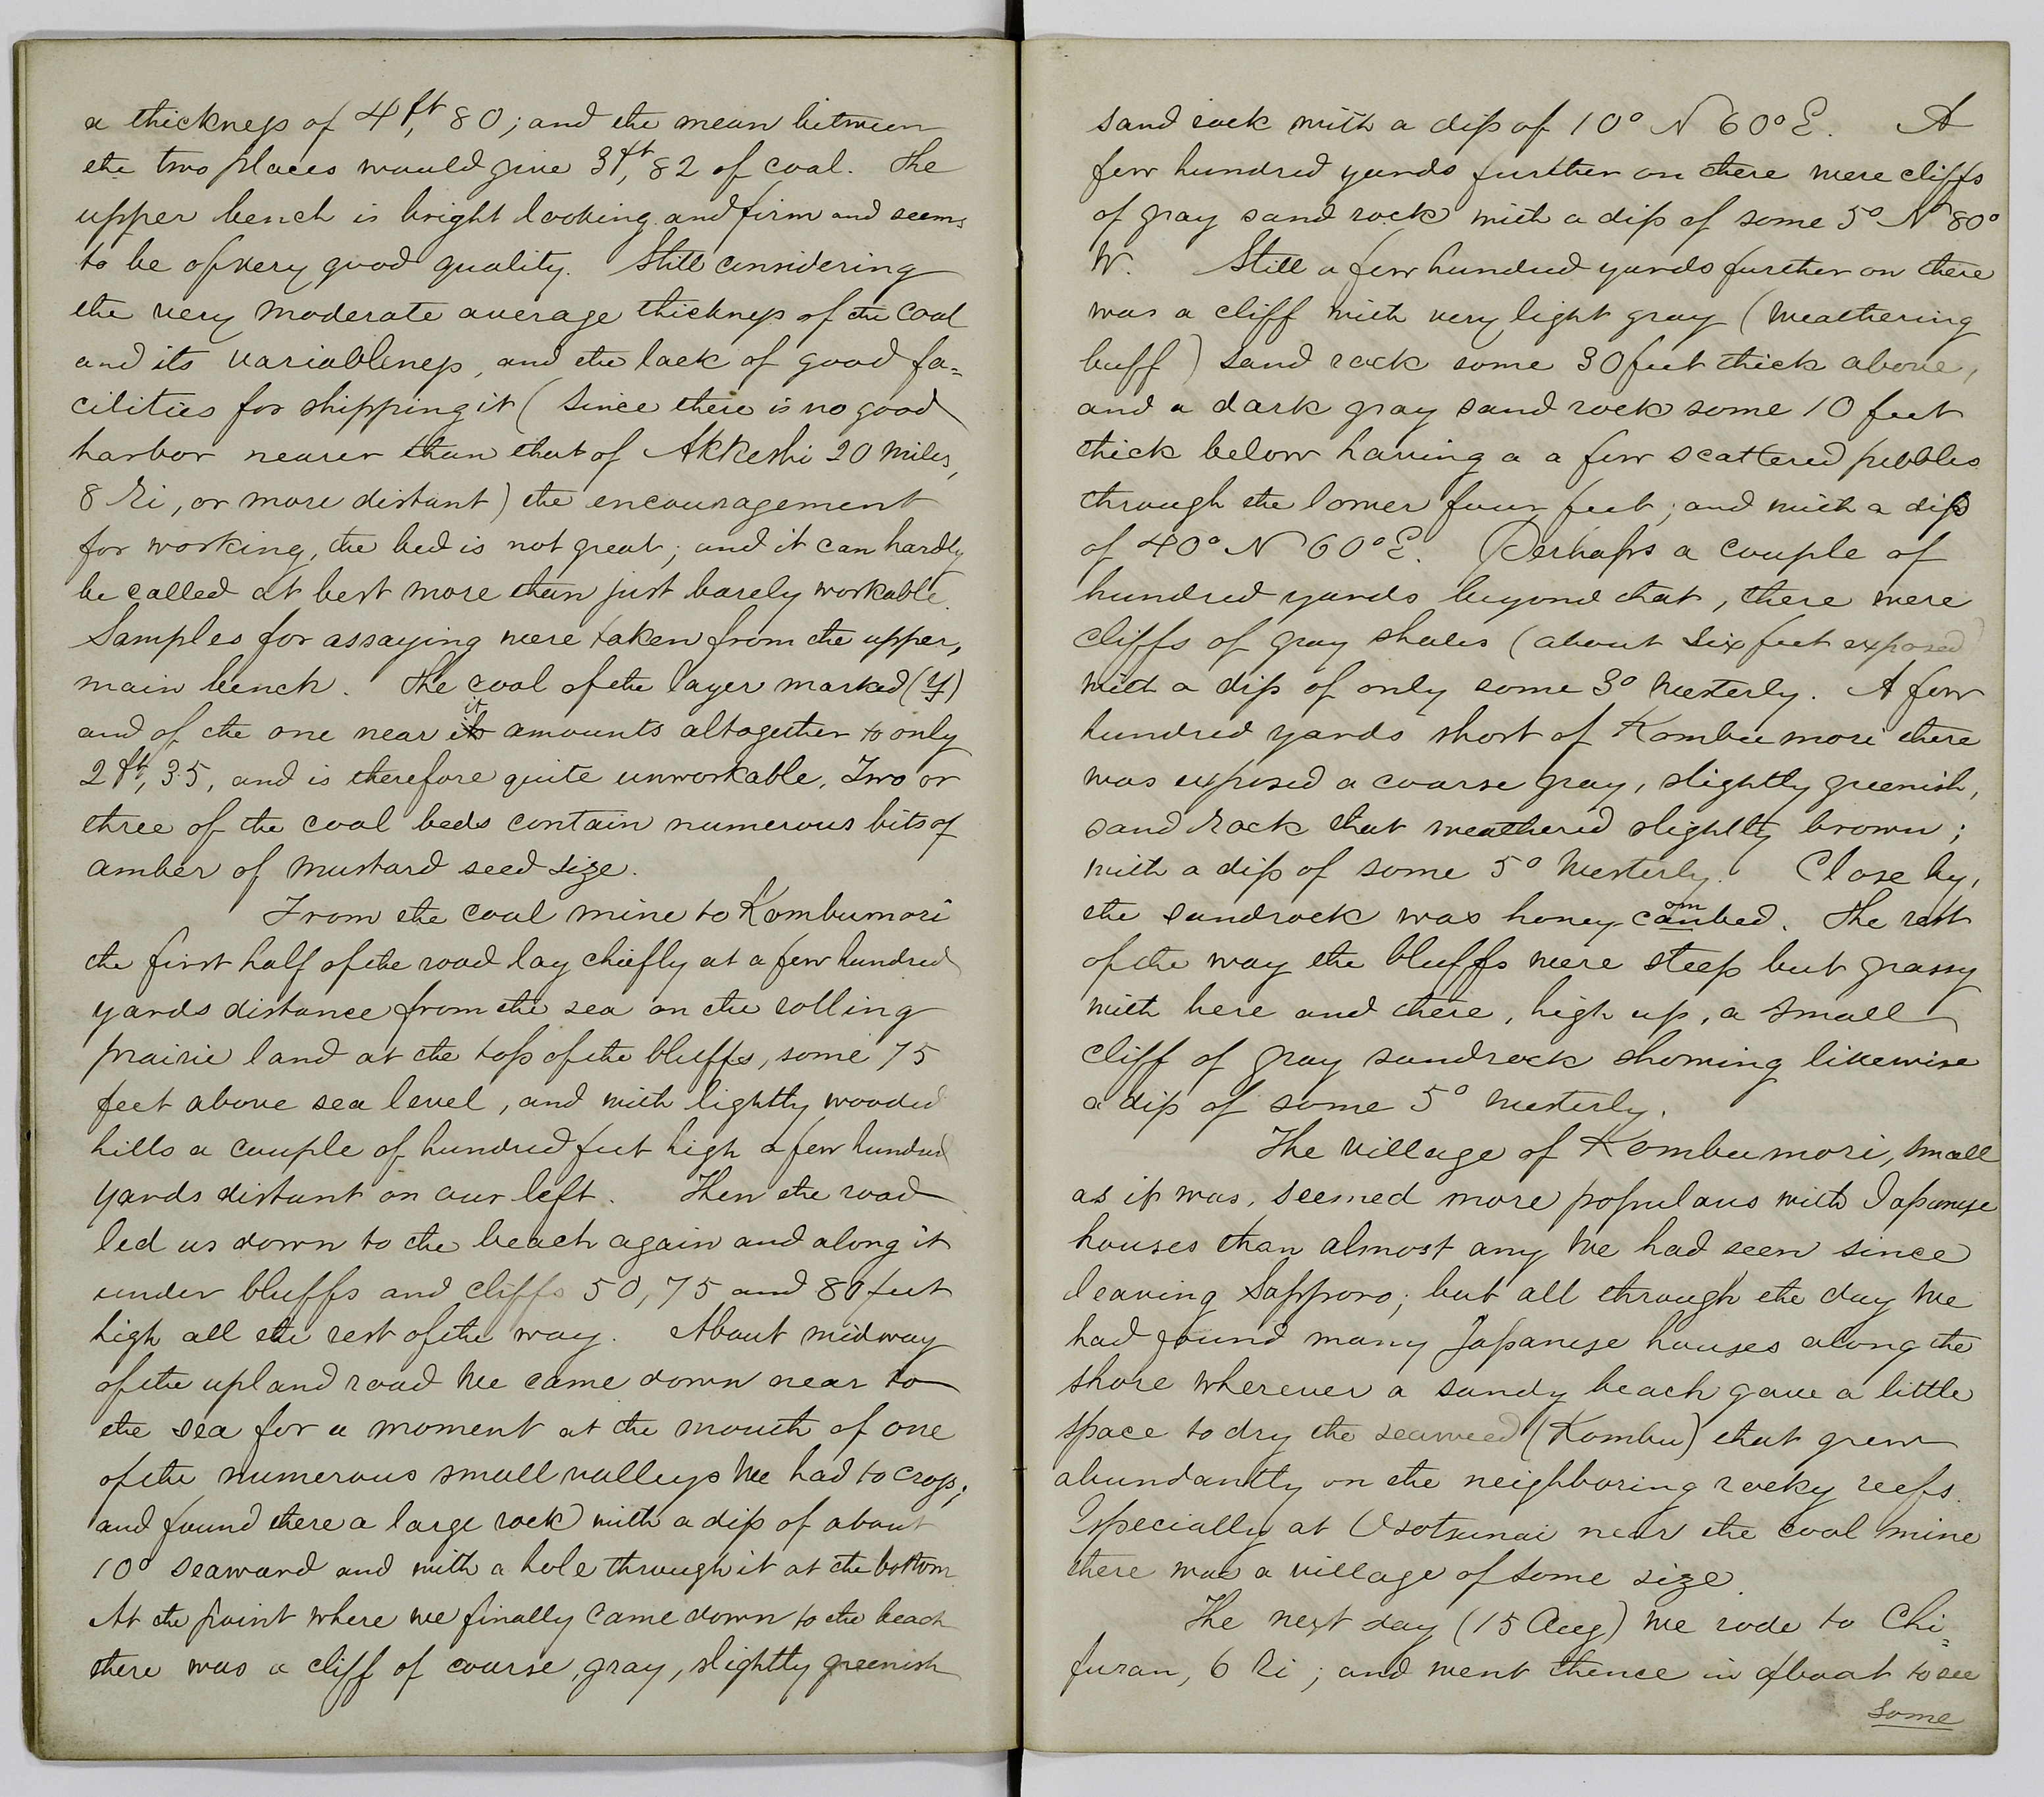 a thickness of 4ft, 80; and the mean between
the two places would give 3ft, 82 of coal. The
upper bench is bright looking and firm and seems
to be of very good quality. Still considering
the very moderate average thickness of the coal
and its variableness, and the lack of good fa=
cilities for shipping it (since there is no good
harbor nearer than that of Akkeshi 20 miles,
8 Ri, or more distant) the encouragement
for working, the bed is not great; and it can hardly
be called at best more than just barely workable.
Samples for assaying were taken from the upper,
main bench. The coal of the layer marked (y)
and of the one near it amounts altogether to only
2ft, 35, and is therefore quite unworkable. Two or
three of the coal beds contain numerous bits of
amber of mustard seed size.
From the coal mine to Kombumori
the first half of the road lay chiefly at a few hundred
yards distance from the sea on the rolling
prairie land at the top of the bluffs, some 75
feet above sea level, and with lightly wooded
hills a couple of hundred feet high a few hundred
yards distant on our left. Then the road
led us down to the beach again and along it
under bluffs and cliffs 50, 75 and 80 feet
high all the rest of the way. About midway
of the upland road we came down near to
the sea for a moment at the mouth of one
of the numerous small valleys we had to cross;
and found there a large rock with a dip of about
10° seaward and with a hole through it at the bottom.
At the point where we finally came down to the beach
there was a cliff of coarse, gray, slightly greenish
sand rock with a dip of 10° N 60° E. A
few hundred yards further on there were cliffs
of gray sand rock with a dip of some 5° N 80°
W. Still a few hundred yards further on there
was a cliff with very light gray (weathering
buff) sand rock some 30 feet thick above,
and a dark gray sand rock some 10 feet
thick below having a a few scattered pebbles
through the lower four feet; and with a dip
of 40° N 60° E. Perhaps a couple of
hundred yards beyond that, there were
cliffs of gray shales (about six feet exposed)
with a dip of only some 3° westerly. A few
hundred yards short of Kombumori there
was exposed a coarse gray, slightly greenish,
sand rock that weathered slightly brown;
with a dip of some 5° westerly. Close by,
the sandrock was honey-combed. The rest
of the way the bluffs were steep but grassy
with here and there, high up, a small
cliff of gray sandrock showing likewise
a dip of some 5° westerly.
The village of Kombumori, small
as it was, seemed more populous with Japanese
houses than almost any we had seen since
leaving Sapporo; but all through the day we
had found many Japanese houses along the
shore wherever a sandy beach gave a little
space to dry the seaweed (Kombu) that grew
abundantly on the neighboring rocky reefs.
Especially at Osotsunai near the coal mine
there was a village of some size.
The next day (15 Aug) we rode to Chi=
furan, 6 Ri; and went thence in a boat to see
some